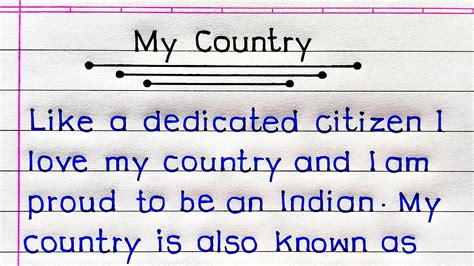 My Country
Like a dedicated citizen I
love my country and I am
proud to be an Indian. My
country is also known as